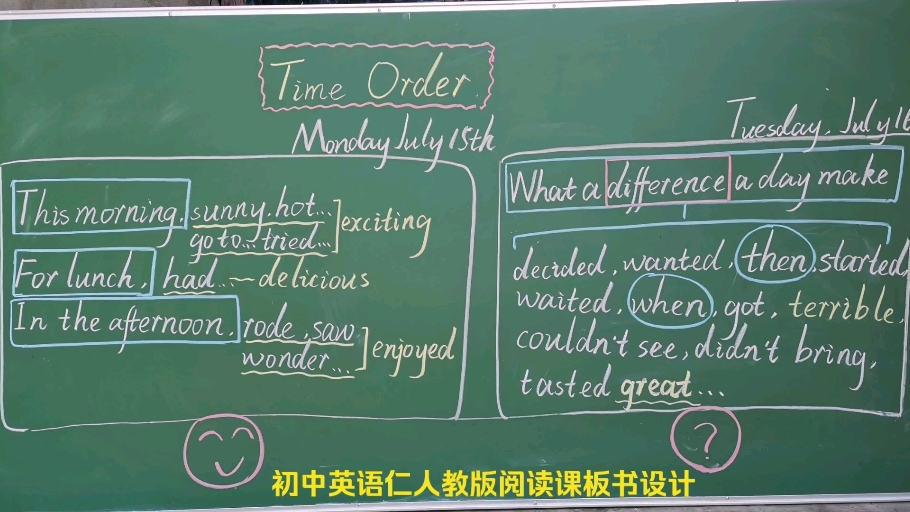 Time Order
Monday July 15th
This morning, sunny, hot...
go to... tried...
exciting
For lunch, had... delicious
In the afternoon, rode, saw
wonder...
enjoyed
Tuesday, July 16
What a difference a day make
decided, wanted, then, started,
waited, when, got, terrible,
couldn't see, didn't bring,
tasted great...
?
初中英语仁人教版阅读课板书设计